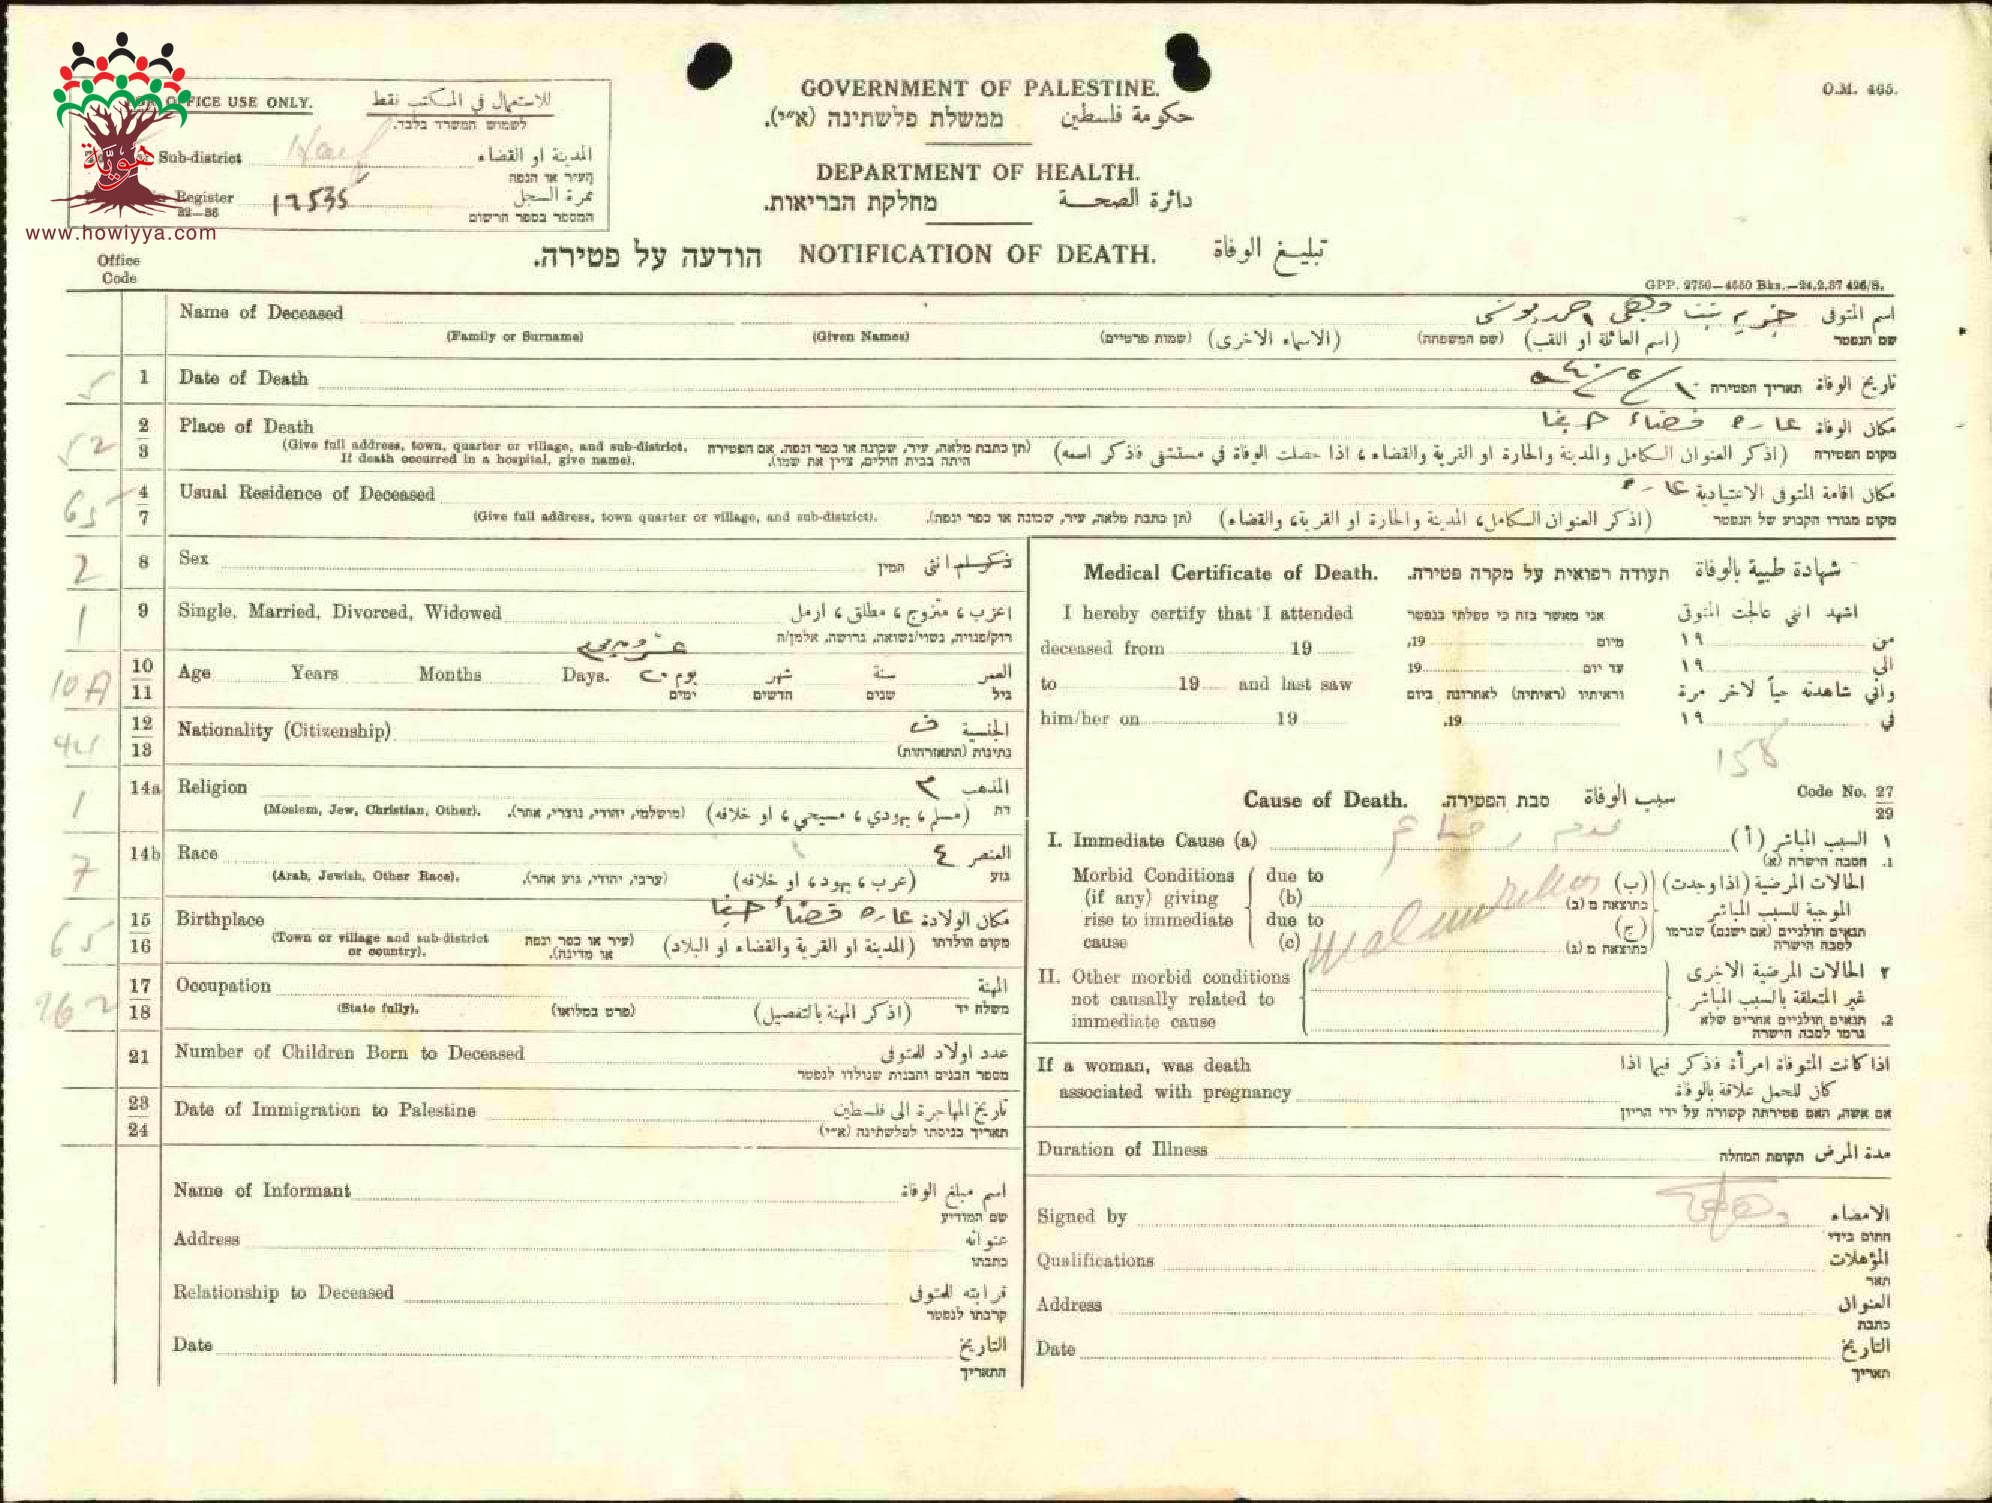 GOVERNMENT OF PALESTINE.
O.M. 465.
ממשלת פלשתינה (א״י). حكومة فلسطين
DEPARTMENT OF HEALTH.
מחלקת הבריאות. دائرة الصحة
OFFICE USE ONLY. للاستعمال في المكتب فقط
לשמוש המשרד בלבד.
Sub-district المدينة او القضاء
העיר או הנפה
Register 12535 نمرة السجل
22—26 המספר בספר הרשום
هوية
www.howiyya.com
הודעה על פטירה. NOTIFICATION OF DEATH. تبليغ الوفاة
Office
Code
GPP. 2750—4650 Bks.—24.2.37 426/S.
Name of Deceased بنت وجهي احمد يونس اسم المتوفى
(Family or Surname) (Given Names) (שמות פרטיים) (الاسماء الاخرى) (שם המשפחה) (اسم العائلة او اللقب) שם הנפטר
5 1 Date of Death תאריך הפטירה تاريخ الوفاة
52 2 3 Place of Death عاره قضاء حيفا مكان الوفاة
(Give full address, town, quarter or village, and sub-district. If death occurred in a hospital, give name). (תן כתבת מלאה, עיר, שכונה או כפר ונפה. אם הפטירה היתה בבית חולים, ציין את שמו). (اذكر العنوان الكامل والمدينة والحارة او القرية والقضاء ، اذا حصلت الوفاة في مستشفى فاذكر اسمه) מקום הפטירה
65 4 7 Usual Residence of Deceased عاره مكان اقامة المتوفى الاعتيادية
(Give full address, town quarter or village, and sub-district). (תן כתבת מלאה, עיר, שכונה או כפר ונפה). (اذكر العنوان الكامل، المدينة والحارة او القرية، والقضاء) מקום מגורו הקבוע של הנפטר
2 8 Sex המין ذكر ام انثى
1 9 Single, Married, Divorced, Widowed اعزب ، متزوج ، مطلق ، ارمل
רווק/פנויה, נשוי/נשואה, גרושה, אלמן/ה
10A 10 11 Age Years Months Days. يوم شهر سنة العمر
ימים חדשים שנים גיל
12 13 Nationality (Citizenship) ف الجنسية
נתינות (התאזרחות)
1 14a Religion م المذهب
(Moslem, Jew, Christian, Other). (מושלמי, יהודי, נוצרי, אחר). (مسلم ، يهودي ، مسيحي ، او خلافه) דת
7 14b Race ع العنصر
(Arab, Jewish, Other Race). (ערבי, יהודי, גזע אחר). (عرب ، يهود ، او خلافه) גזע
65 15 16 Birthplace عاره قضاء حيفا مكان الولادة
(Town or village and sub-district or country). (עיר או כפר ונפה או מדינה). (المدينة او القرية والقضاء او البلاد) מקום הולדתו
17 18 Occupation المهنة
(State fully). (פרט במלואו) (اذكر المهنة بالتفصيل) משלח יד
21 Number of Children Born to Deceased عدد اولاد المتوفى
מספר הבנים והבנות שנולדו לנפטר
23 24 Date of Immigration to Palestine تاريخ المهاجرة الى فلسطين
תאריך כניסתו לפלשתינה (א״י)
Name of Informant اسم مبلغ الوفاة
שם המודיע
Address عنوانه
כתבתו
Relationship to Deceased قرابته للمتوفى
קרבתו לנפטר
Date التاريخ
התאריך
Medical Certificate of Death. תעודה רפואית על מקרה פטירה. شهادة طبية بالوفاة
I hereby certify that I attended אני מאשר בזה כי טפלתי בנפטר اشهد انني عالجت المتوفى
deceased from 19 19, מיום ١٩ من
to 19 and last saw 19 עד יום ١٩ الى
וראיתיו (ראיתיה) לאחרונה ביום واني شاهدته حياً لاخر مرة
him/her on 19 19. ١٩ في
158
Cause of Death. סבת הפטירה. سبب الوفاة Code No. 27 29
I. Immediate Cause (a) (أ) السبب المباشر ١
1. הסבה הישרה (א)
Morbid Conditions (if any) giving rise to immediate cause due to (b) due to (c)
(ب) الحالات المرضية (اذا وجدت)
כתוצאה מ (ב) الموجبة للسبب المباشر
(ج) תנאים חולניים (אם ישנם) שגרמו
כתוצאה מ (ג) לסבה הישרה
II. Other morbid conditions not causally related to immediate cause
٢ الحالات المرضية الاخرى
غير المتعلقة بالسبب المباشر
2. תנאים חולניים אחרים שלא
גרמו לסבה הישרה
If a woman, was death اذا كانت المتوفاة امرأة فاذكر فيما اذا
associated with pregnancy كان للحمل علاقة بالوفاة
אם אשה, האם פטירתה קשורה על ידי הריון
Duration of Illness תקופת המחלה مدة المرض
Signed by الامضاء
חתום בידי
Qualifications المؤهلات
תאר
Address العنوان
כתבת
Date التاريخ
תאריך